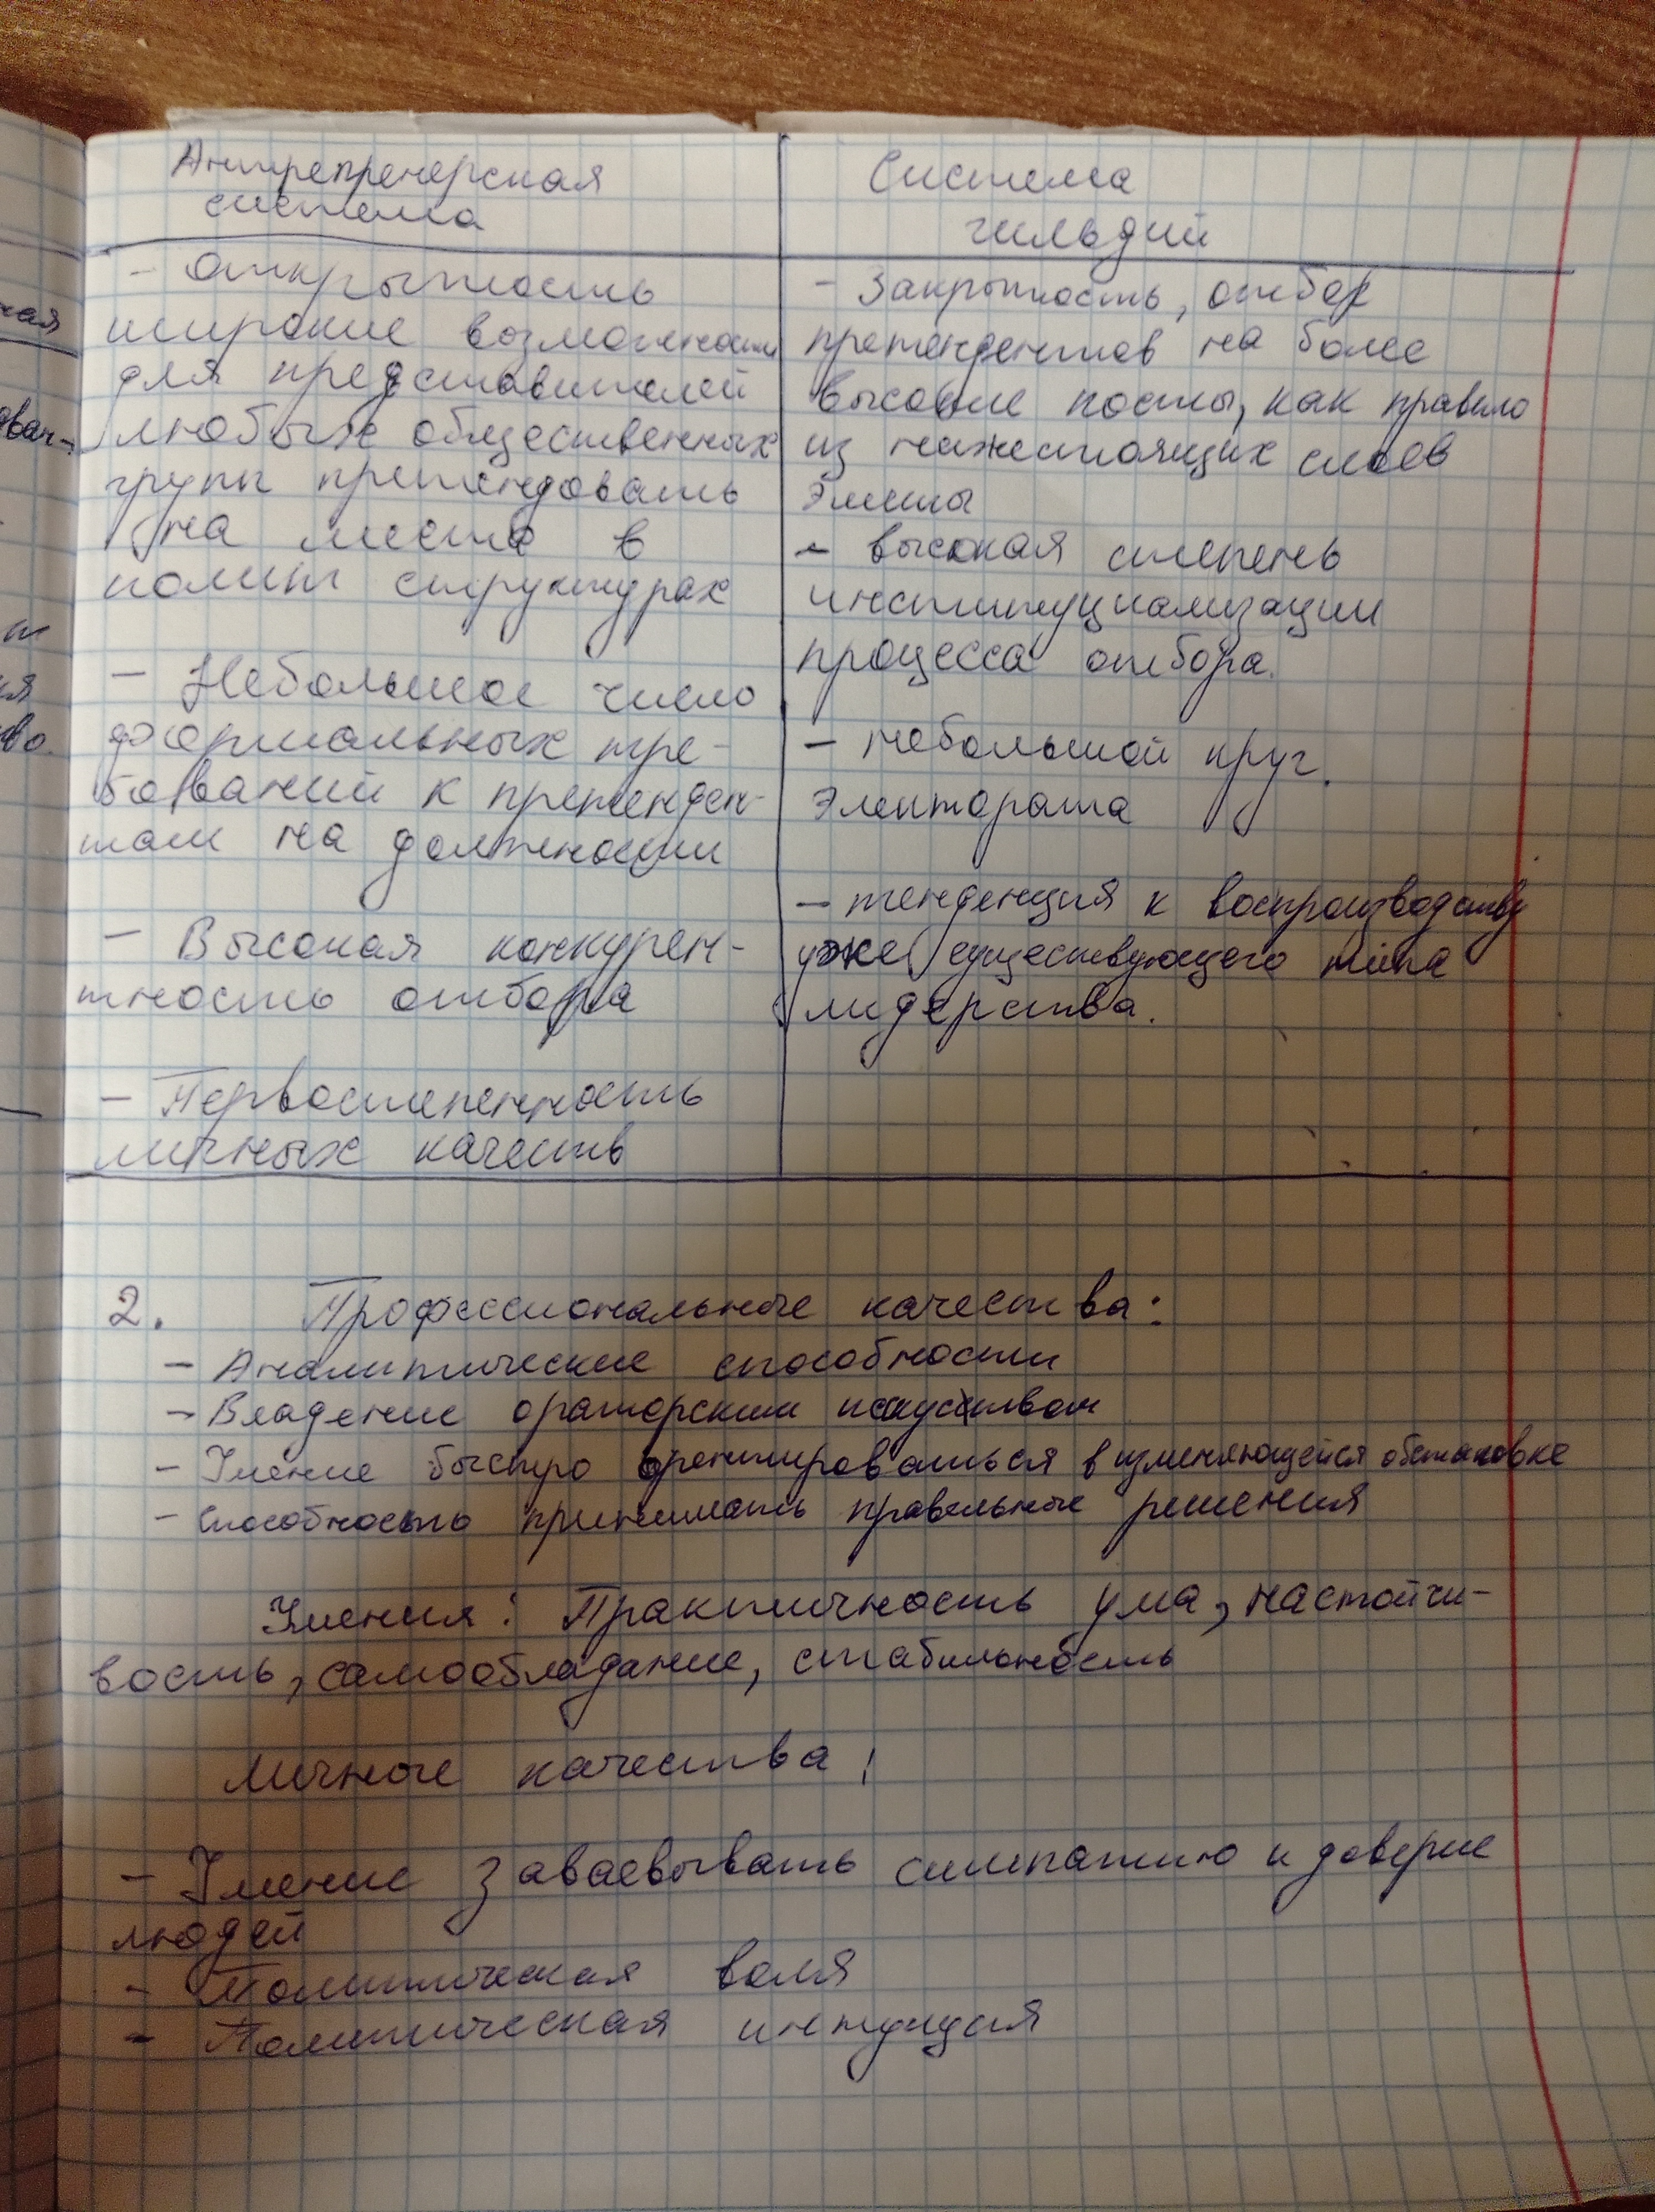 Антрепренерская
система
- Открытость
широкие возможности
для представителей
любых общественных
групп претендовать
на место в
полит структурах
- Небольшое число
формальных тре-
бований к претенден-
там на должности
- Высокая конкурен-
тность отбора
- Первостепенность
личных качеств
Система
гильдий
- Закрытость, отбор
претендентов на более
высокие посты, как правило
из нижестоящих слоев
элиты
- высокая степень
институциализации
процесса отбора.
- небольшой круг
электората
- тенденция к воспроизводству
уже существующего типа
лидерства.
2. Профессиональные качества:
- Аналитические способности
- Владение ораторским искусством
- Умение быстро орентироваться в изменяющейся обстановке
- Способность принимать правельные решения
Умения: Практичность ума, настойчи-
вость, самообладание, стабильность
Личные качества:
- Умение заваевывать симпатию и доверие
людей
- Политическая воля
- Политическая интуиция
ная